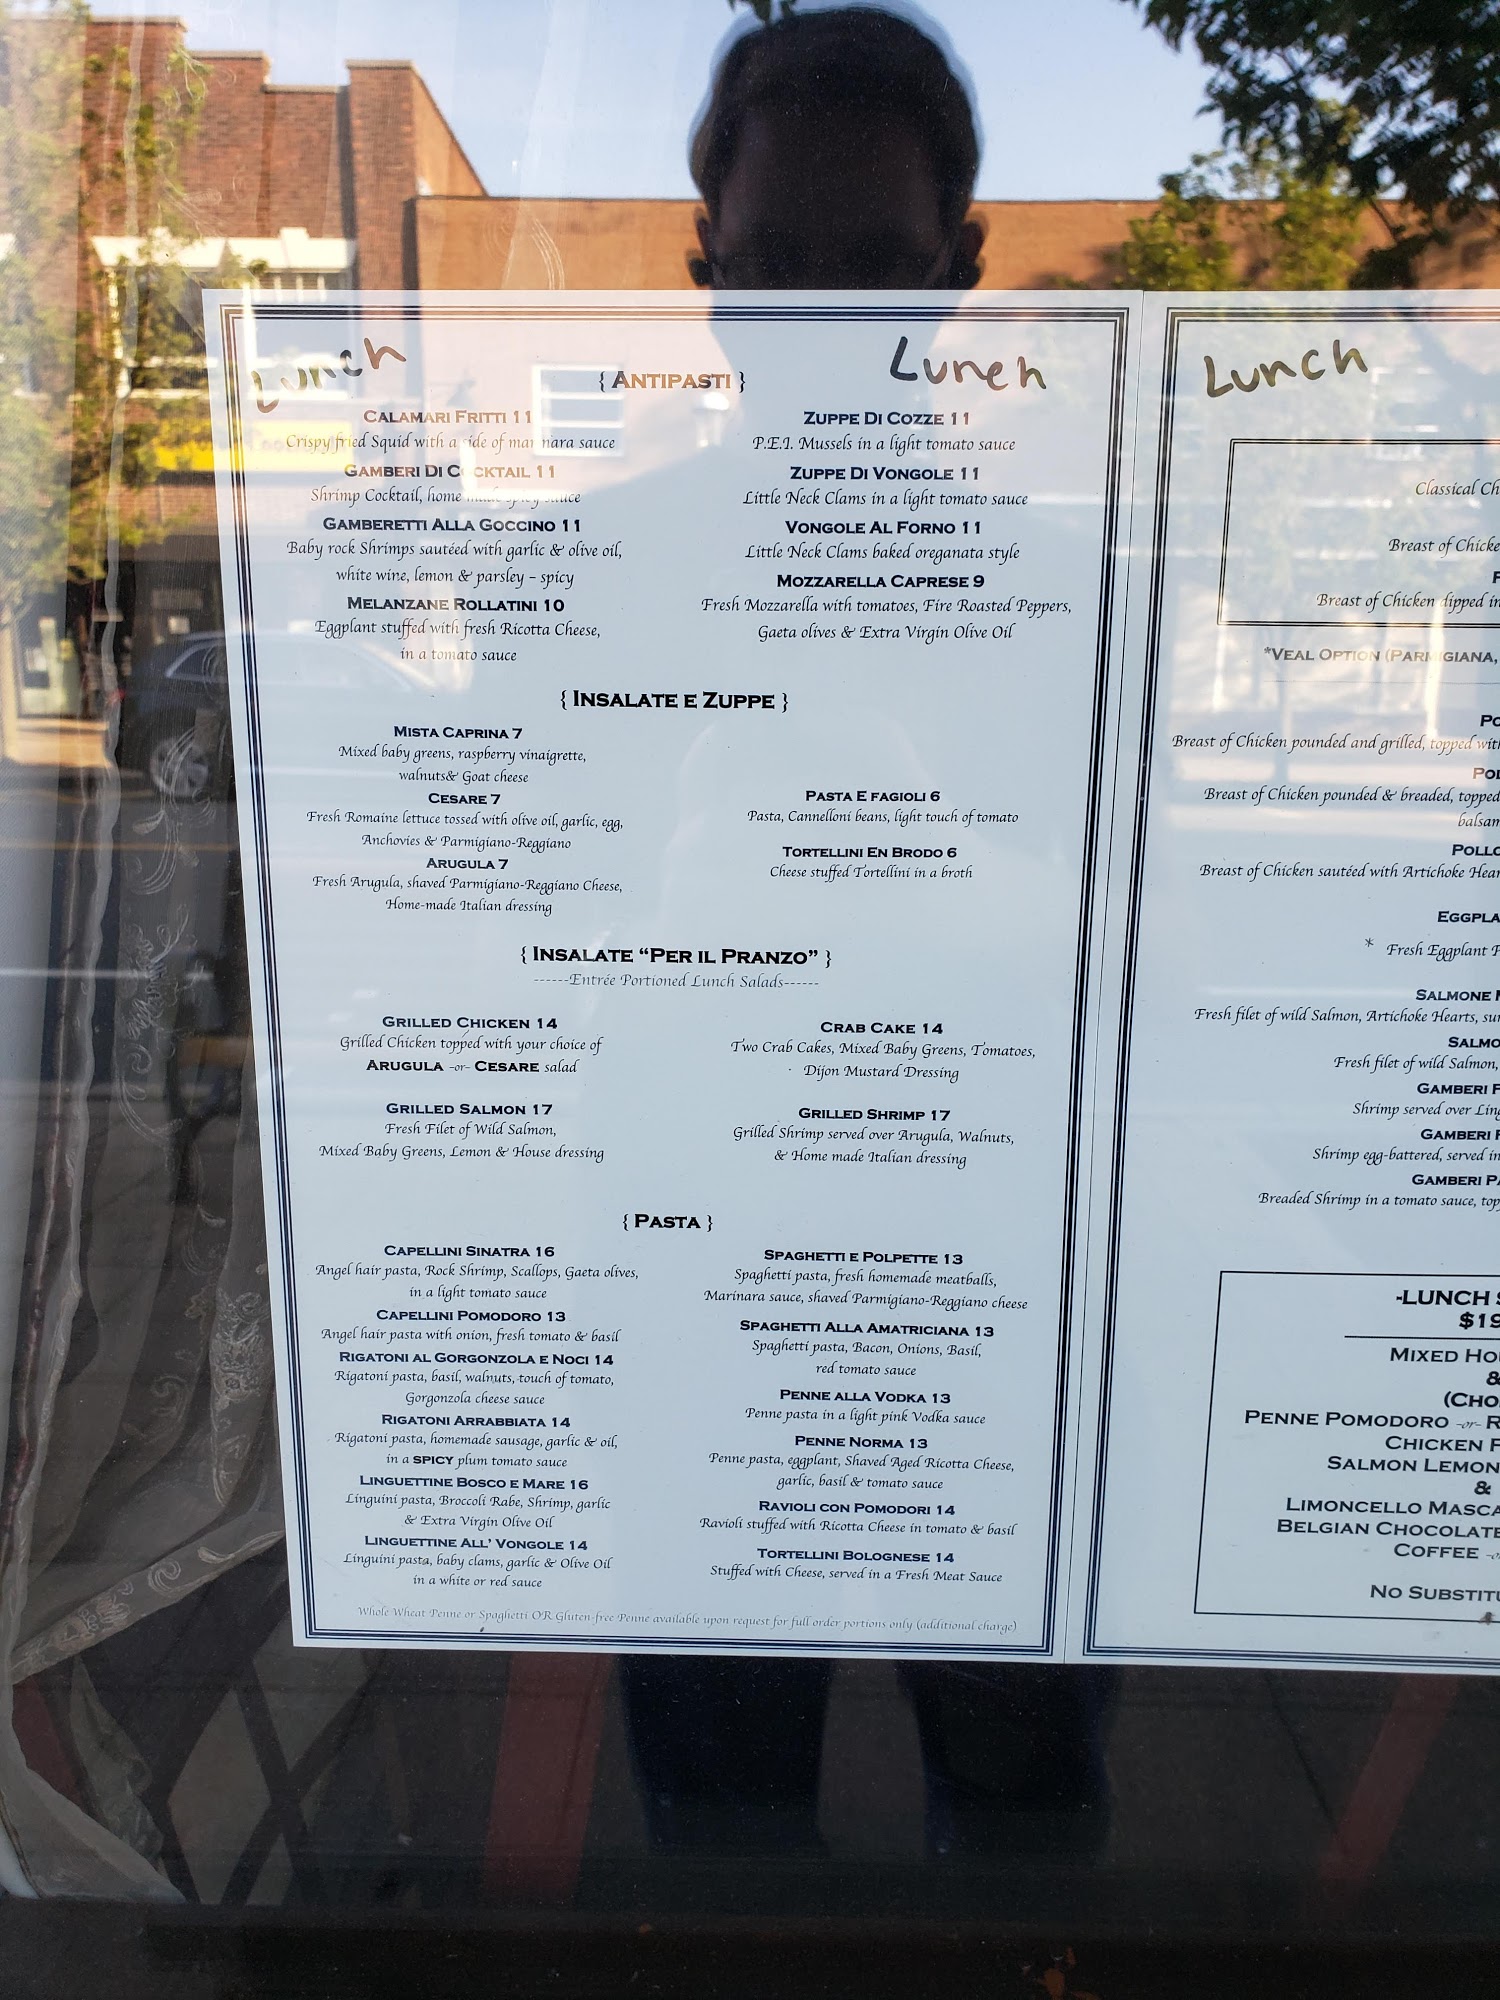 Lunch
{ ANTIPASTI }
Lunch
CALAMARI FRITTI 11
Crispy fried Squid with a side of marinara sauce
GAMBERI DI COCKTAIL 11
Shrimp Cocktail, home made spicy sauce
GAMBERETTI ALLA GOCCINO 11
Baby rock Shrimps sautéed with garlic & olive oil,
white wine, lemon & parsley – spicy
MELANZANE ROLLATINI 10
Eggplant stuffed with fresh Ricotta Cheese,
in a tomato sauce
ZUPPE DI COZZE 11
P.E.I. Mussels in a light tomato sauce
ZUPPE DI VONGOLE 11
Little Neck Clams in a light tomato sauce
VONGOLE AL FORNO 11
Little Neck Clams baked oreganata style
MOZZARELLA CAPRESE 9
Fresh Mozzarella with tomatoes, Fire Roasted Peppers,
Gaeta olives & Extra Virgin Olive Oil
{ INSALATE E ZUPPE }
MISTA CAPRINA 7
Mixed baby greens, raspberry vinaigrette,
walnuts& Goat cheese
CESARE 7
Fresh Romaine lettuce tossed with olive oil, garlic, egg,
Anchovies & Parmigiano-Reggiano
ARUGULA 7
Fresh Arugula, shaved Parmigiano-Reggiano Cheese,
Home-made Italian dressing
PASTA E FAGIOLI 6
Pasta, Cannelloni beans, light touch of tomato
TORTELLINI EN BRODO 6
Cheese stuffed Tortellini in a broth
{ INSALATE “PER IL PRANZO” }
------Entrée Portioned Lunch Salads------
GRILLED CHICKEN 14
Grilled Chicken topped with your choice of
ARUGULA -or- CESARE salad
GRILLED SALMON 17
Fresh Filet of Wild Salmon,
Mixed Baby Greens, Lemon & House dressing
CRAB CAKE 14
Two Crab Cakes, Mixed Baby Greens, Tomatoes,
Dijon Mustard Dressing
GRILLED SHRIMP 17
Grilled Shrimp served over Arugula, Walnuts,
& Home made Italian dressing
{ PASTA }
CAPELLINI SINATRA 16
Angel hair pasta, Rock Shrimp, Scallops, Gaeta olives,
in a light tomato sauce
CAPELLINI POMODORO 13
Angel hair pasta with onion, fresh tomato & basil
RIGATONI AL GORGONZOLA E NOCI 14
Rigatoni pasta, basil, walnuts, touch of tomato,
Gorgonzola cheese sauce
RIGATONI ARRABBIATA 14
Rigatoni pasta, homemade sausage, garlic & oil,
in a SPICY plum tomato sauce
LINGUETTINE BOSCO E MARE 16
Linguini pasta, Broccoli Rabe, Shrimp, garlic
& Extra Virgin Olive Oil
LINGUETTINE ALL' VONGOLE 14
Linguini pasta, baby clams, garlic & Olive Oil
in a white or red sauce
SPAGHETTI E POLPETTE 13
Spaghetti pasta, fresh homemade meatballs,
Marinara sauce, shaved Parmigiano-Reggiano cheese
SPAGHETTI ALLA AMATRICIANA 13
Spaghetti pasta, Bacon, Onions, Basil,
red tomato sauce
PENNE ALLA VODKA 13
Penne pasta in a light pink Vodka sauce
PENNE NORMA 13
Penne pasta, eggplant, Shaved Aged Ricotta Cheese,
garlic, basil & tomato sauce
RAVIOLI CON POMODORI 14
Ravioli stuffed with Ricotta Cheese in tomato & basil
TORTELLINI BOLOGNESE 14
Stuffed with Cheese, served in a Fresh Meat Sauce
Whole Wheat Penne or Spaghetti OR Gluten-free Penne available upon request for full order portions only (additional charge)
Lunch
Classical
Breast of
Breast of Chicken dipped in
*VEAL OPTION (PARMIGIANA,
Breast of Chicken pounded and grilled, topped with
Breast of Chicken pounded & breaded, topped
Breast of Chicken sautéed with Artichoke
* Fresh Eggplant
SALMONE
Fresh filet of wild Salmon, Artichoke Hearts,
Fresh filet of wild Salmon,
GAMBERI
Shrimp served over
GAMBERI
Shrimp egg-battered, served in
GAMBERI
Breaded Shrimp in a tomato sauce,
-LUNCH
$19
MIXED
&
PENNE POMODORO -or-
CHICKEN
SALMON
&
LIMONCELLO
BELGIAN CHOCOLATE
COFFEE
NO